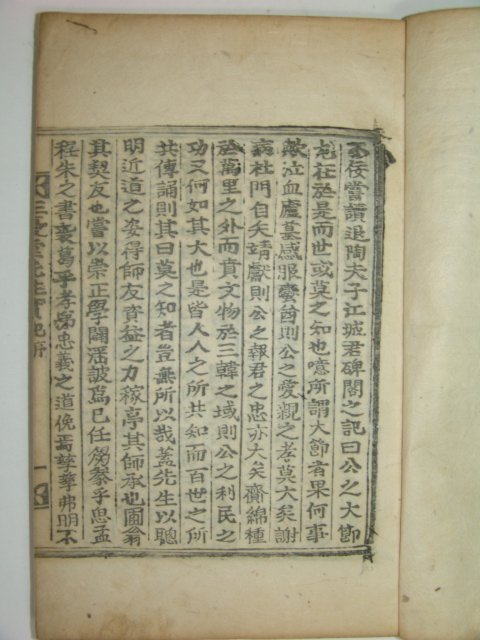 不佞嘗讀退陶夫子江城君碑閣之記曰公之大節
尤在於是而世或莫之知也噫所謂大節者果何事
歟泣血廬墓感服蠻酋則公之愛親之孝莫大矣謝
病杜門自矢靖獻則公之報君之忠亦大矣齎綿種
於萬里之外而賁文物於三韓之域則公之利民之
功又何如其大也是皆人人之所共知而百世之所
共傳誦則其曰莫之知者豈無所以哉盖先生以聰
明近道之姿得師友資益之力稼亭其師承也圃翁
其契友也嘗以崇正學闢滛詖爲已任芻豢乎思孟
程朱之書裘葛乎孝弟忠義之道俛焉孶孶弗明不
三憂堂先生實記序
一